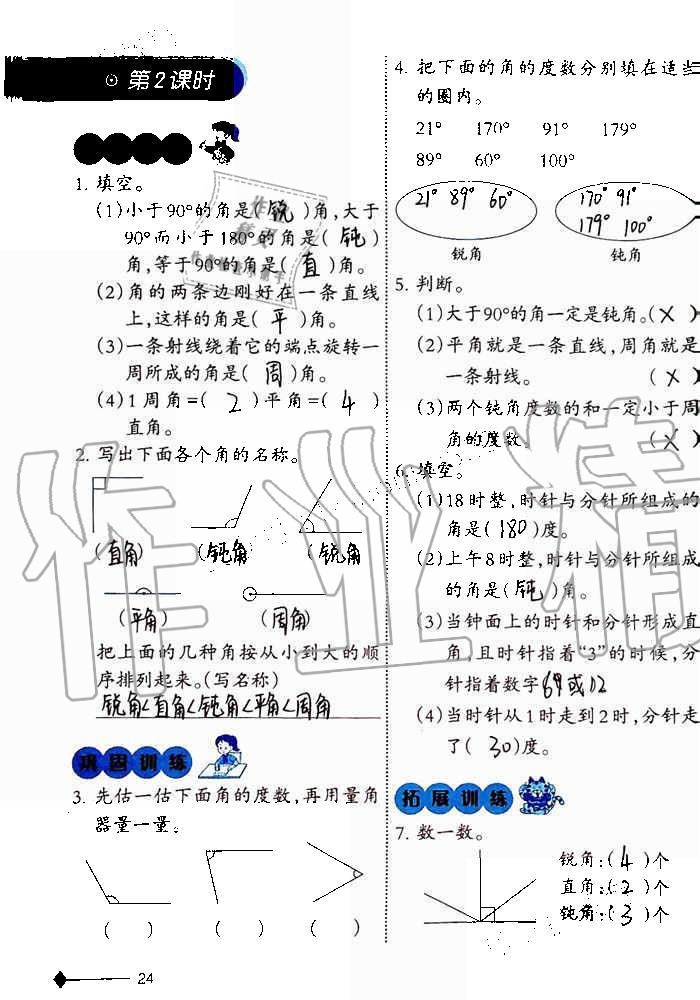 第2课时
1. 填空。
(1)小于90°的角是(锐)角,大于
90°而小于180°的角是(钝)
角,等于90°的角是(直)角。
(2)角的两条边刚好在一条直线
上,这样的角是(平)角。
(3)一条射线绕着它的端点旋转一
周所成的角是(周)角。
(4)1周角=(2)平角=(4)
直角。
2. 写出下面各个角的名称。
(直角) (钝角) (锐角
(平角) (周角)
把上面的几种角按从小到大的顺
序排列起来。(写名称)
锐角<直角<钝角<平角<周角
巩固训练
3. 先估一估下面角的度数,再用量角
器量一量。
( ) ( ) ( )
24
4. 把下面的角的度数分别填在适当
的圈内。
21° 170° 91° 179°
89° 60° 100°
21° 89° 60° 170° 91°
179° 100°
锐角 钝角
5. 判断。
(1)大于90°的角一定是钝角。(X)
(2)平角就是一条直线,周角就是
一条射线。 (X)
(3)两个钝角度数的和一定小于周
角的度数。 (X)
6. 填空。
(1)18时整,时针与分针所组成的
角是(180)度。
(2)上午8时整,时针与分针所组成
的角是(钝)角。
(3)当钟面上的时针和分针形成直
角,且时针指着“3”的时候,分
针指着数字 或12
(4)当时针从1时走到2时,分针走
了(30)度。
拓展训练
7. 数一数。
锐角:(4)个
直角:(2)个
钝角:(3)个
作业精